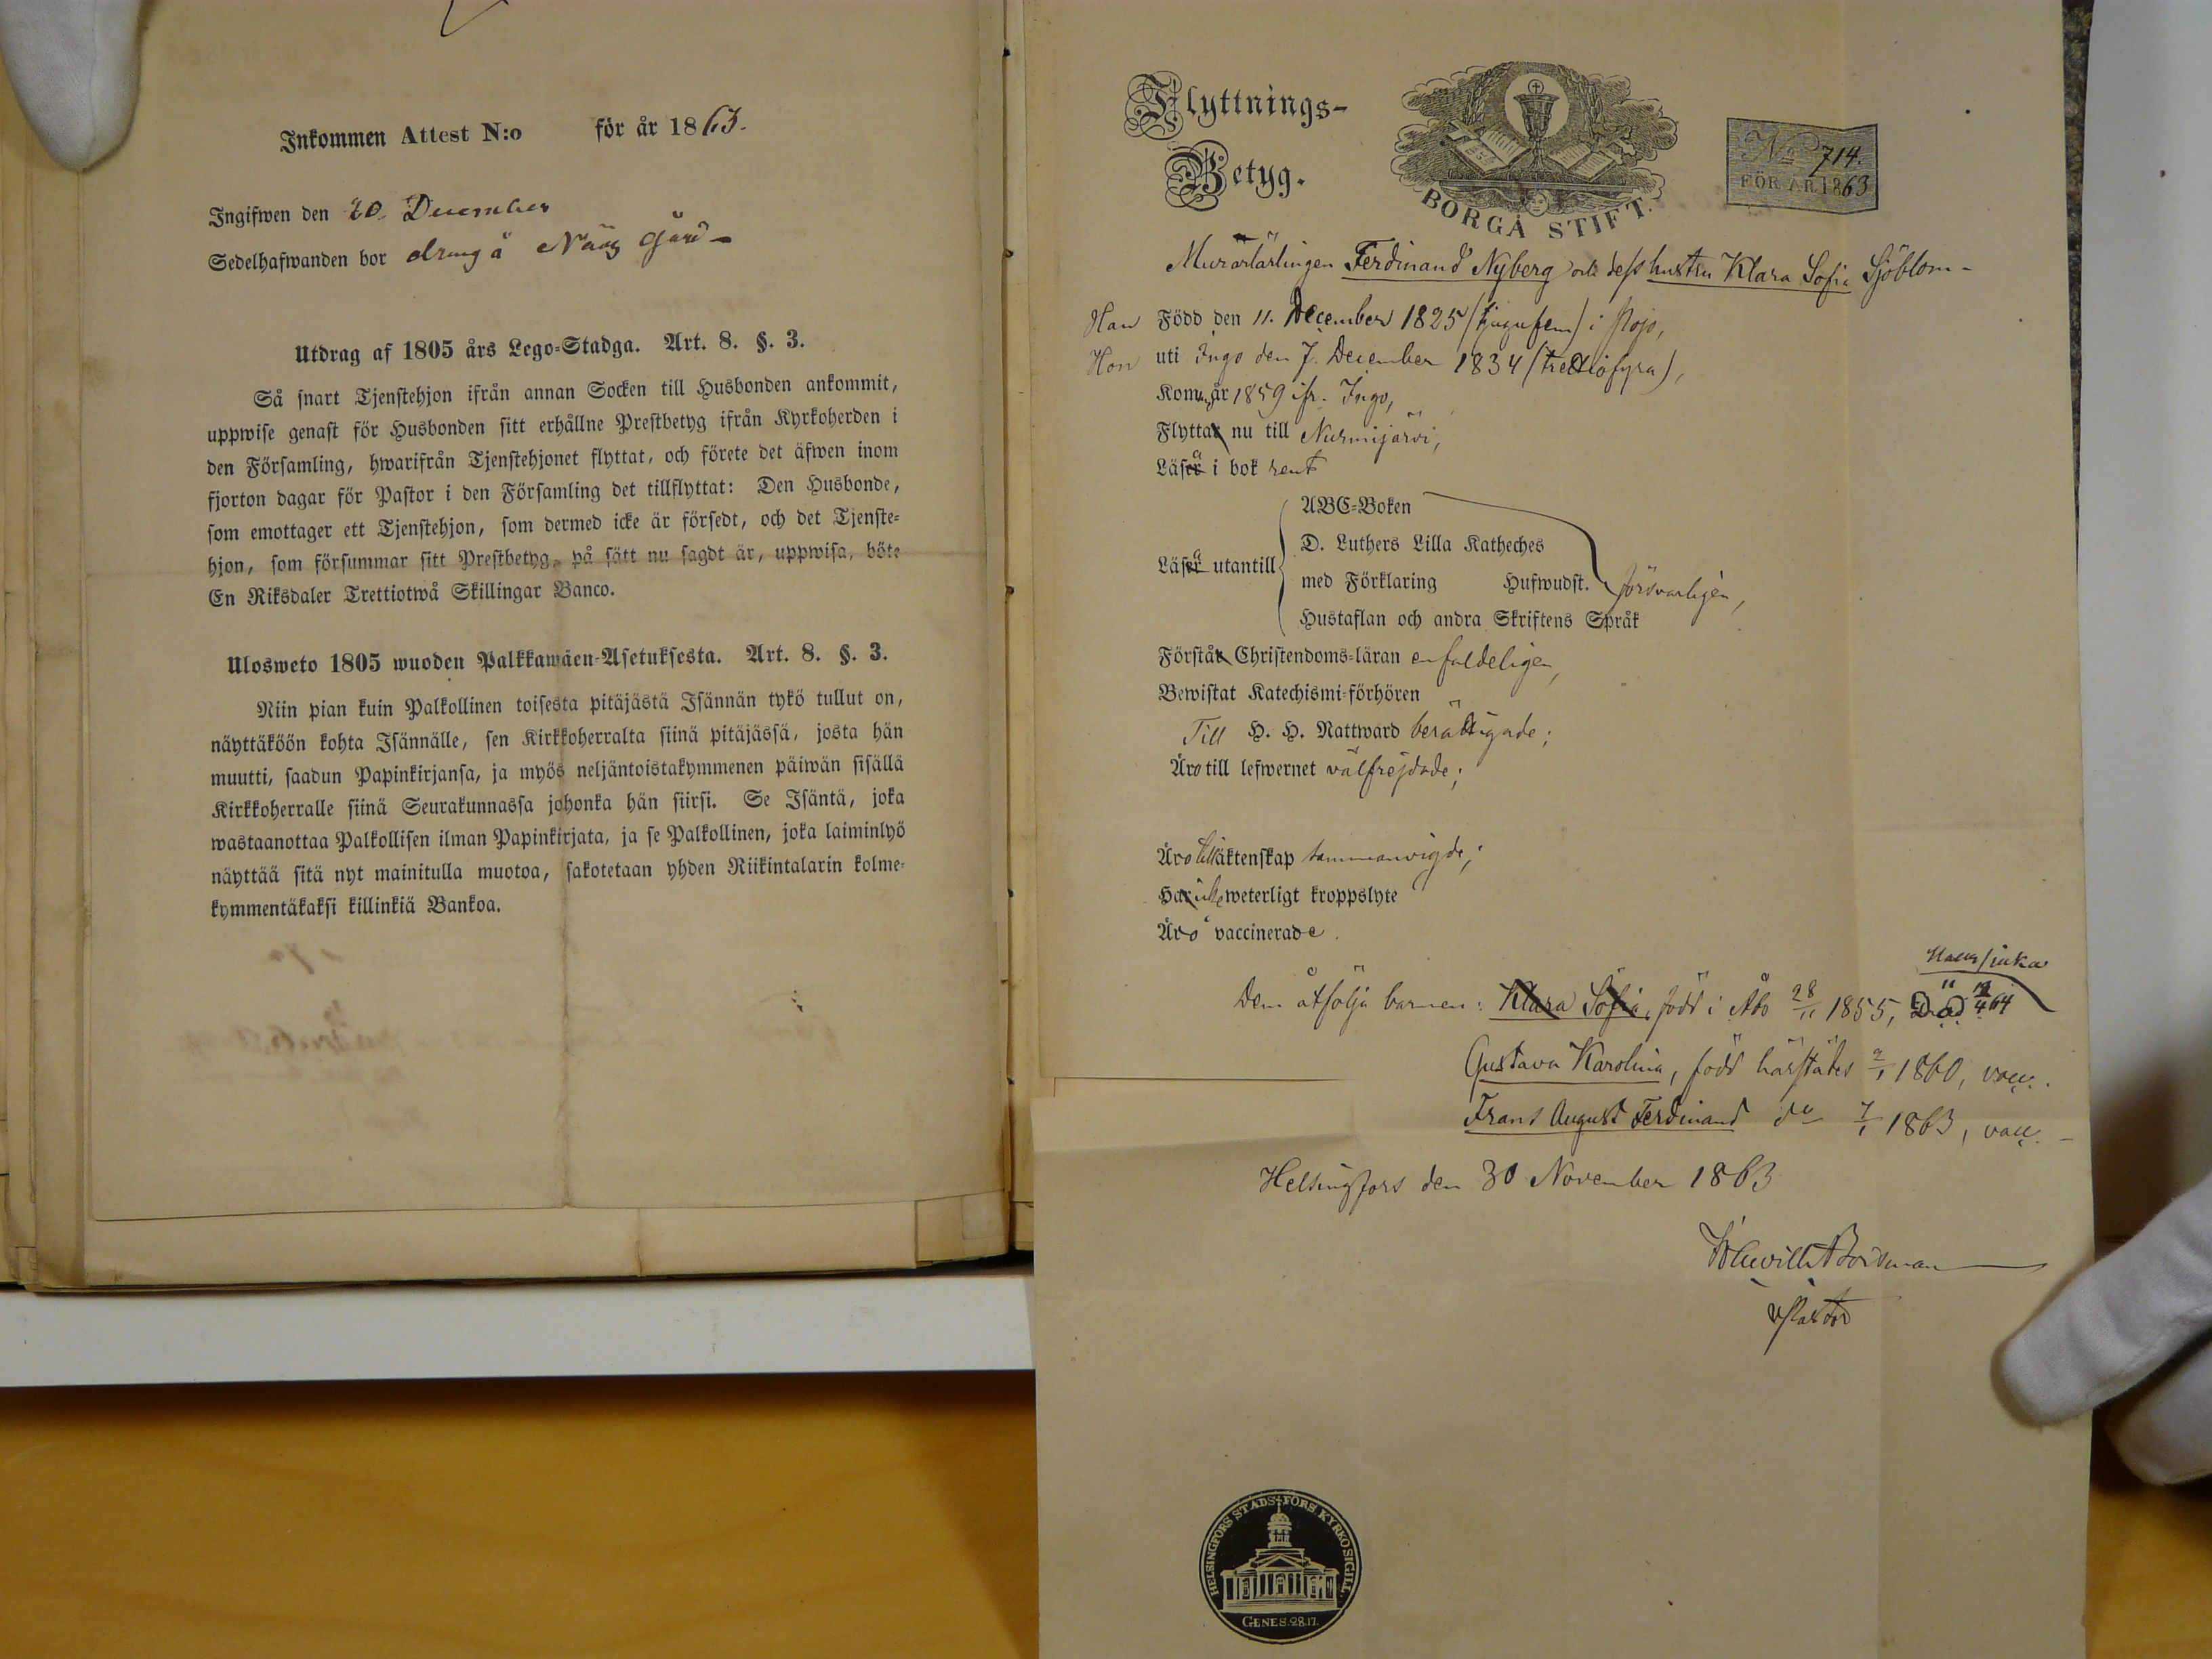 Inkommen Attest N:o för år 1863.
Ingifwen den 20. December
Sedelhafwanden bor å Näs gård
Utdrag af 1805 års Lego-Stadga. Art. 8. §. 3.
Så snart Tjenstehjon ifrån annan Socken till Husbonden ankommit,
uppwise genast för Husbonden sitt erhållne Prestbetyg ifrån Kyrkoherden i
den Församling, hwarifrån Tjenstehjonet flyttat, och förete det äfwen inom
fjorton dagar för Pastor i den Församling det tillflyttat: Den Husbonde,
som emottager ett Tjenstehjon, som dermed icke är försedt, och det Tjenste-
hjon, som försummar sitt Prestbetyg, på sätt nu sagdt är, uppwisa, böte
En Riksdaler Trettiotwå Skillingar Banco.
Ulosweto 1805 wuoden Palkkawäen-Asetuksesta. Art. 8. §. 3.
Niin pian kuin Palkollinen toisesta pitäjästä Isännän tykö tullut on,
näyttäköön kohta Isännälle, sen Kirkkoherralta siinä pitäjässä, josta hän
muutti, saadun Papinkirjansa, ja myös neljäntoistakymmenen päiwän sisällä
Kirkkoherralle siinä Seurakunnassa johonka hän siirsi. Se Isäntä, joka
wastaanottaa Palkollisen ilman Papinkirjata, ja se Palkollinen, joka laiminlyö
näyttää sitä nyt mainitulla muotoa, sakotetaan yhden Riikintalarin kolme-
kymmentäkaksi killinkiä Bankoa.
Flyttnings-
Betyg.
BORGÅ STIFT.
No 714.
FÖR ÅR 1863
Murarlärlingen Ferdinand Nyberg och dess hustru Klara Sofia Sjöblom-
Han Född den 11. December 1825 (tjugufem) i Pojo,
Hon uti Ingo den 7. December 1834 (trettiofyra),
Kom år 1859 ifr. Ingo,
Flytta nu till Nurmijärvi,
Läsa i bok rent
ABC-Boken
D. Luthers Lilla Katheches
Läsa utantill med Förklaring Hufwudst. försvarligen,
Hustaflan och andra Skriftens Språk
Förstå Christendoms-läran enfaldeligen,
Bewistat Katechismi-förhören
Till H. H. Nattward berättigade;
Äro till lefwernet välfrejdade;
Äro till äktenskap sammanvigde;
Ha icke weterligt kroppslyte
Äro vaccinerade.
Dem åtfölja barnen: Klara Sofia, född i Åbo 28/11 1855, Död 12/4 64
Gustava Karolina, född härstädes 2/1 1860, vacc.
Frans August Ferdinand do 7/1 1863, vacc. -
Helsingfors den 30 November 1863
v Pastor
HELSINGFORS STADS FÖRS. KYRKOSIGILL
GENES. 28.17.